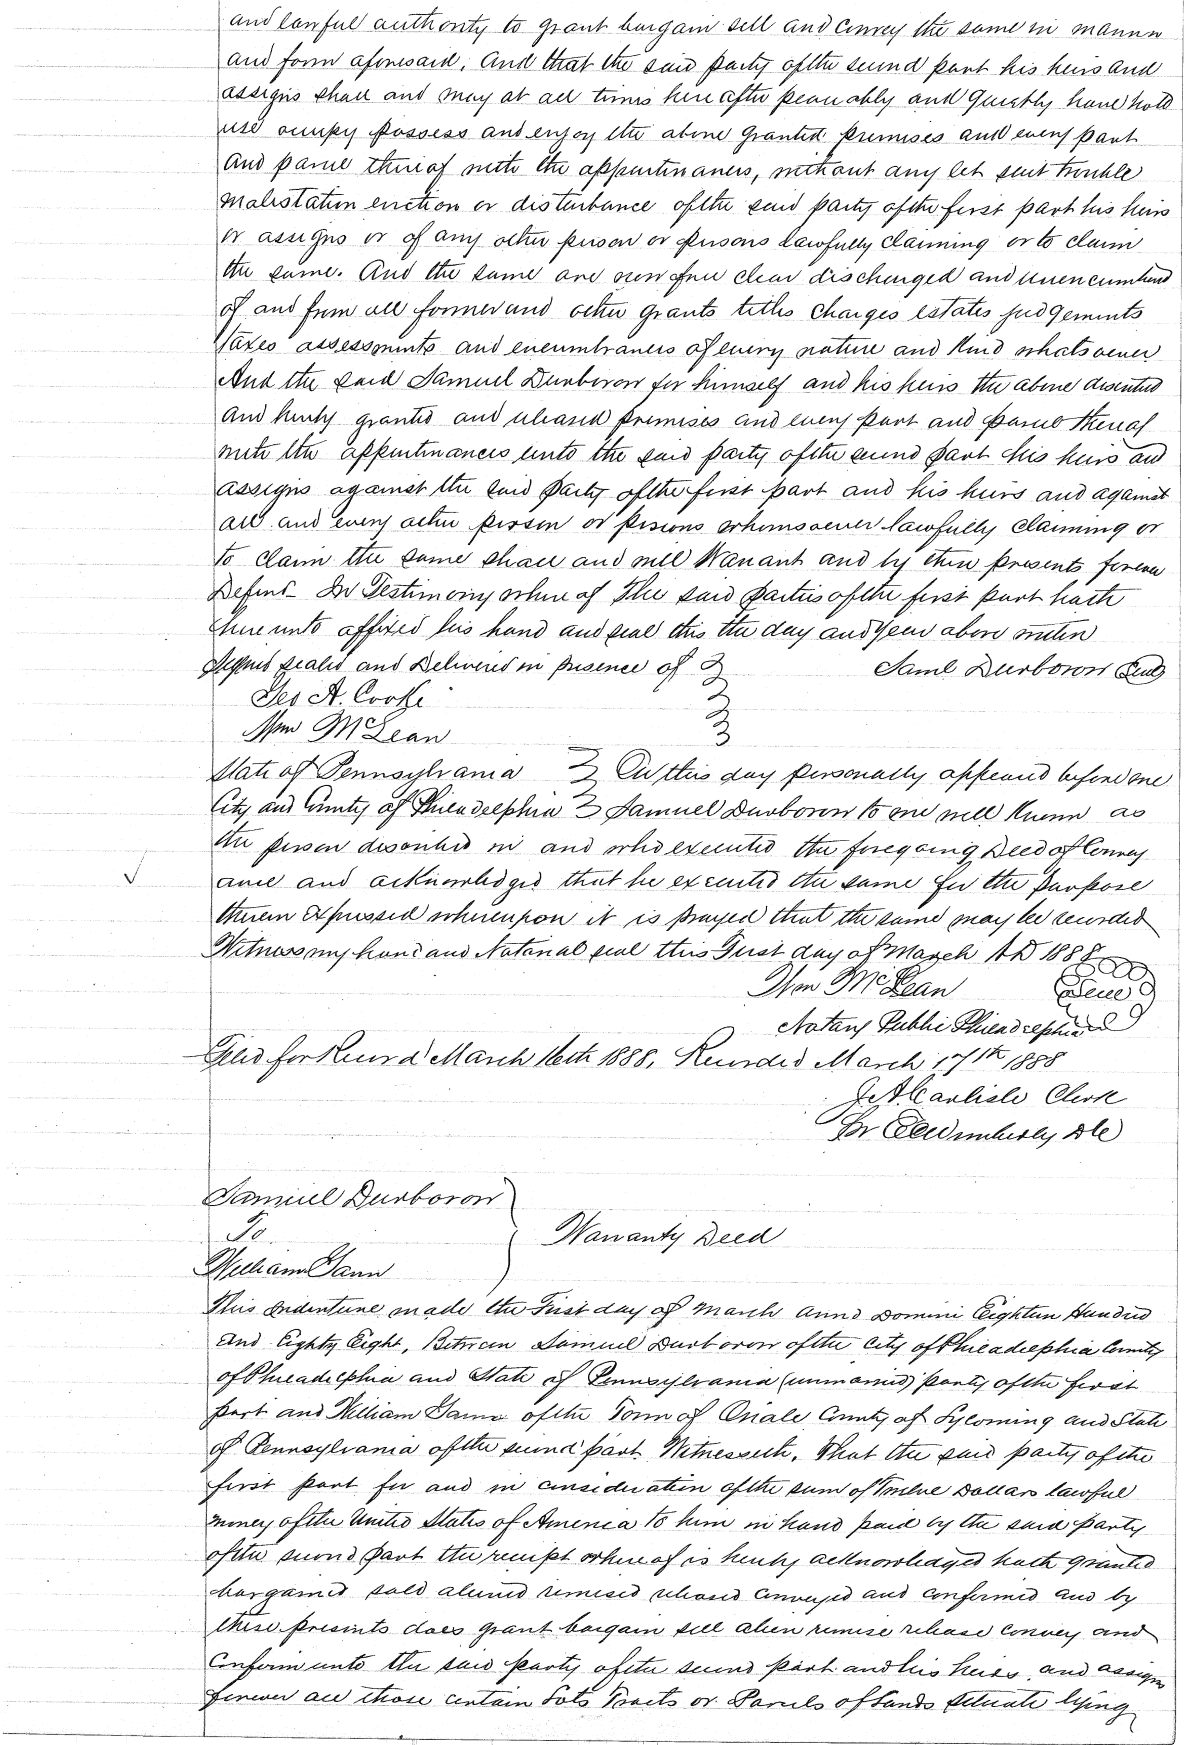 and lawful authority to grant bargain sell and Convey the same in manner
and form aforesaid. And that the said party of the second part his heirs and
assigns shall and may at all times here after peaceably and Quietly have hold
use occupy possess and enjoy the above Granted premises and every part
and parcel thereof with the appurtinances, without any let suit trouble
Molestation eviction or disturbance of the said party of the first part his heirs
or assigns or of any other person or persons lawfully claiming or to claim
the same. And the same are now free clear discharged and unencumbered
of and from all former and other grants titles charges estates judgements
Taxes assessments and encumbrances of every nature and Kind whatsoever
And the said Samuel Durborow for himself and his heirs the above described
And hereby granted and released premises and every part and parcel thereof
with the appurtinances unto the said party of the second part his heirs and
assigns against the said Party of the first part and his heirs and against
all and every other person or persons whomsoever lawfully Claiming or
to claim the same shall and will Warrant and by these presents forever
Defend In Testimony where of The said parties of the first part hath
here unto affixed his hand and seal this the day and Year above written
Signed sealed and Delivered in presence of
Saml Durborow Seal
Geo A. Cooke
Wm McLean
State of Pennsylvania On this day personally appeared before me
City and County of Philadelphia Samuel Durborow to me well Known as
the person described in and who executed the foregoing Deed of Convey
ance and acknowledged that he executed the same for the purpose
therein Expressed whereupon it is prayed that the same may be recorded
Witness my hand and Notarial seal this First day of March AD 1888
Wm McLean Seal
Notary Public Philadelphia
Filed for Record March 16th 1888, Recorded March 17th 1888
J A Carlisle Clerk
Wimberly DC
Samuel Durborow
To
Warranty Deed
William Gann
This Indenture made the First day of March Anno Domini Eighteen Hundred
and Eighty Eight, Between Samuel Durborow of the City of Philadelphia County
of Philadelphia and State of Pennsylvania (unmarried) party of the first
part and William Gann of the Town of Oriale County of Lycoming and State
of Pennsylvania of the second part. Witnesseth, That the said party of the
first part for and in consideration of the sum of Twelve Dollars lawful
money of the United States of America to him in hand paid by the said party
of the second part the receipt where of is hereby acknowledged hath granted
bargained sold aliened remised released conveyed and confirmed and by
these presents does grant bargain sell alien remise release convey and
Confirm unto the said party of the second part and his heirs and assigns
forever all those certain Lots Tracts or Parcels of Lands Situate lying